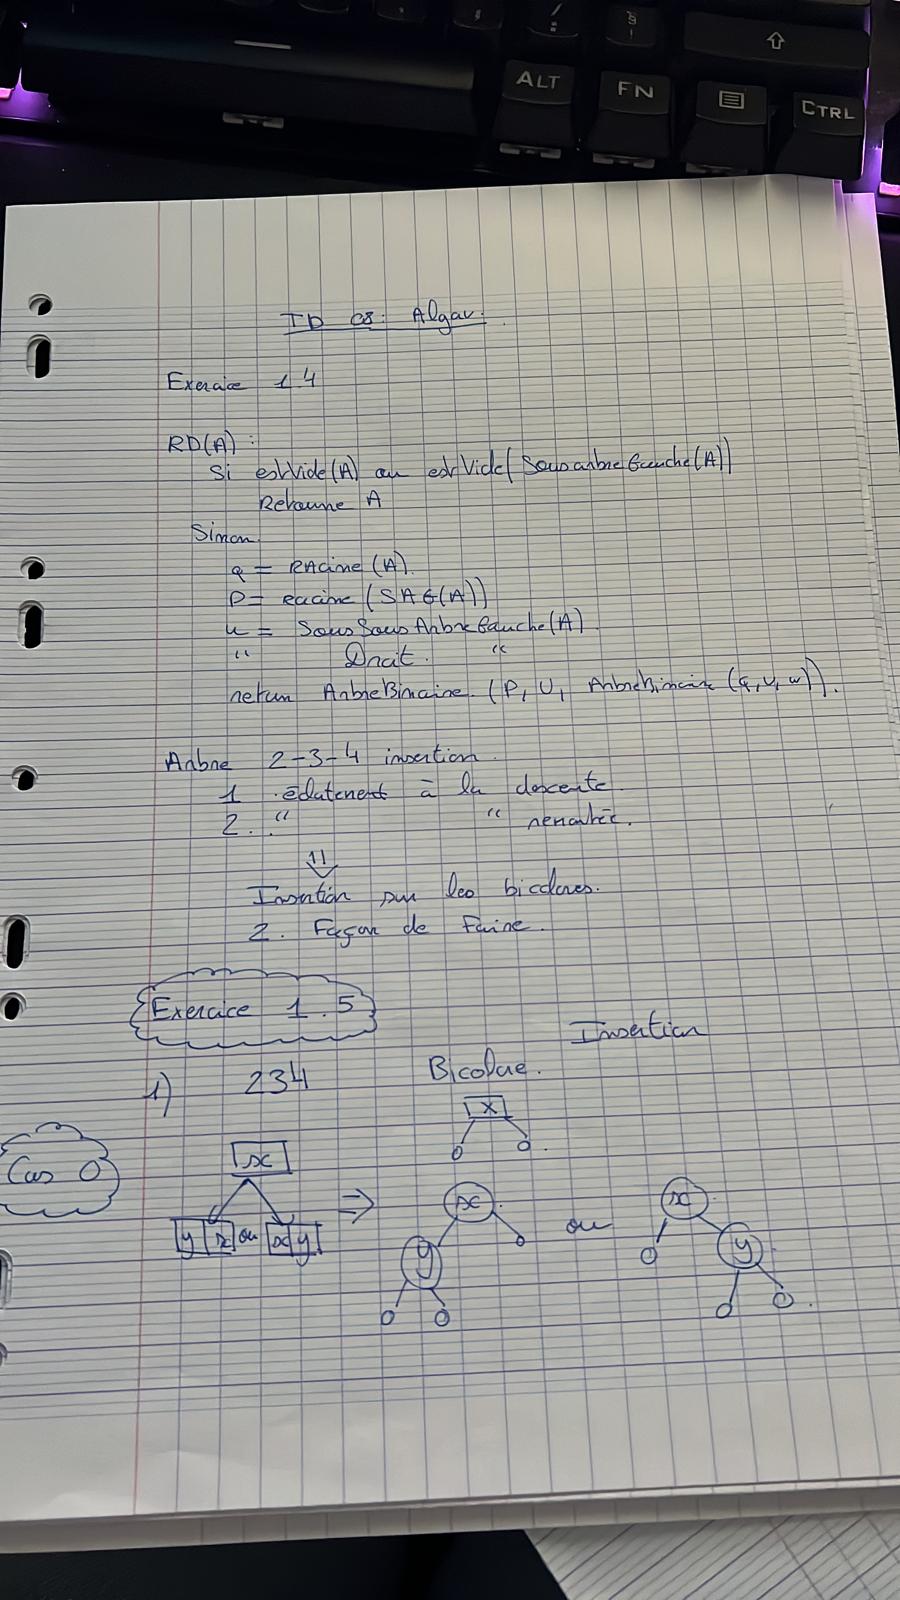 ALT
FN
CTRL
TD 08: Algav.
Exercice 1.4
RD(A) :
Si estVide(A) ou estVide(SousarbreGauche(A))
Retourne A
Sinon
q = RAcine (A).
P = racine (SAG(A))
u = SousSousArbreGauche(A)
" Droit. "
return ArbreBinaire. (P, U, ArbreBinaire (q, v, w)).
Arbre 2-3-4 insertion.
1 éclatement à la descente.
2. " " remontée.
Insertion sur les bicolores.
2. Façon de Faire.
Exercice 1.5
Insertion
1) 234 Bicolore.
x
Cas 0
x
y x ou x y
⇒
x
y
ou
x
y